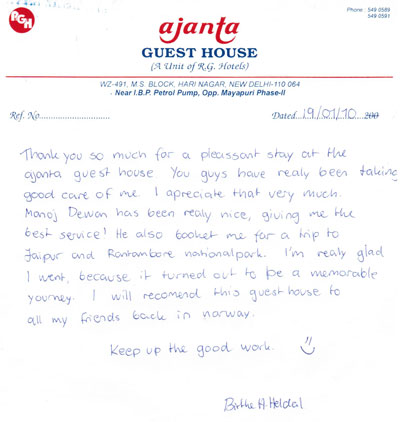 PGH
Phone : 549 0589
549 0591
ajanta
GUEST HOUSE
(A Unit of R.G. Hotels)
WZ-491, M.S. BLOCK, HARI NAGAR, NEW DELHI-110 064
Near I.B.P. Petrol Pump, Opp. Mayapuri Phase-II
Ref. No............................ Dated 19/01/10 200
Thank you so much for a pleassant stay at the
ajanta guest house. You guys have realy been taking
good care of me. I apreciate that very much.
Manoj Dewan has been realy nice, giving me the
best service! He also booket me for a trip to
Jaipur and Rantambore nationalpark. I'm realy glad
I went, because it turned out to be a memorable
yourney. I will recomend this guesthouse to
all my friends back in norway.
Keep up the good work. :)
Birthe H. Heldal